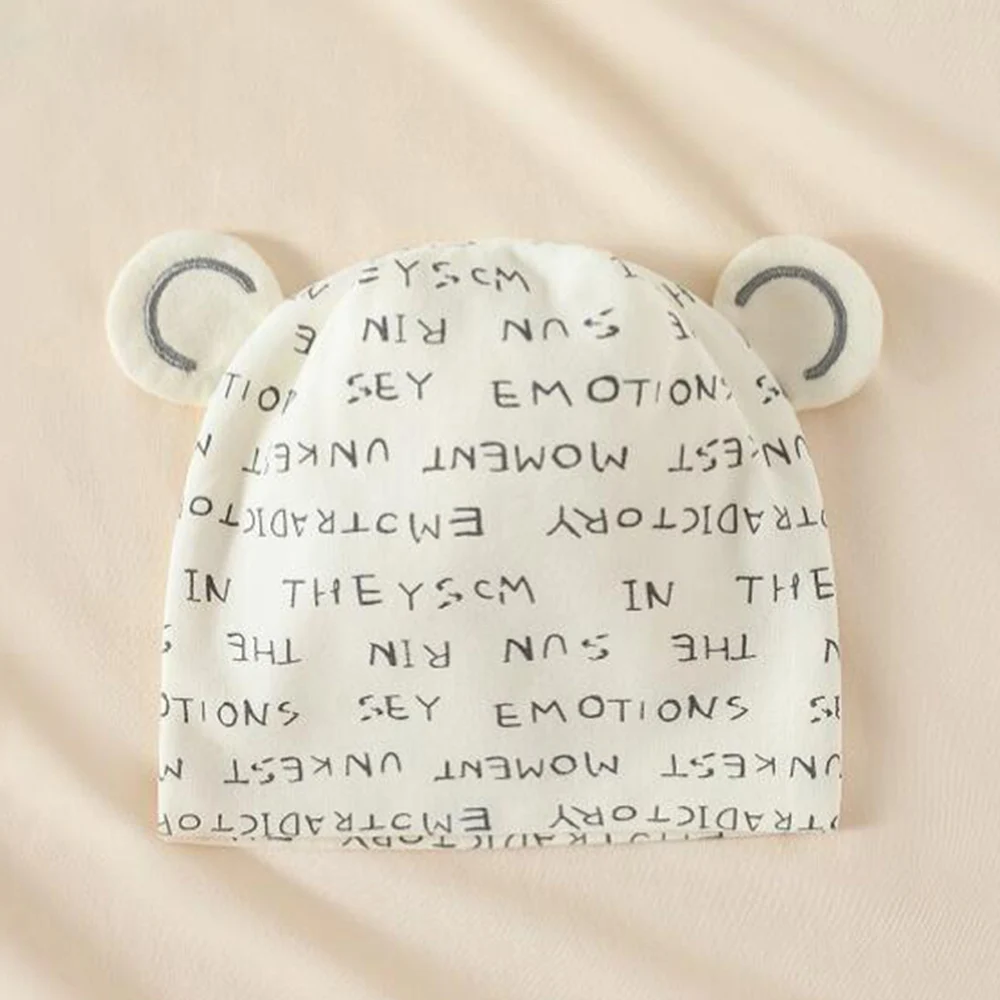 YSCM
SUN RIN
SEY EMOTIONS
UNKEST MOMENT UNKEST
TRADICTORY EMCTRADICTO
IN THEYSCM IN THE
THE SUN RIN THE
OTIONS SEY EMOTIONS SE
UNKEST MOMENT UNKEST
TRADICTORY EMCTRADICTO